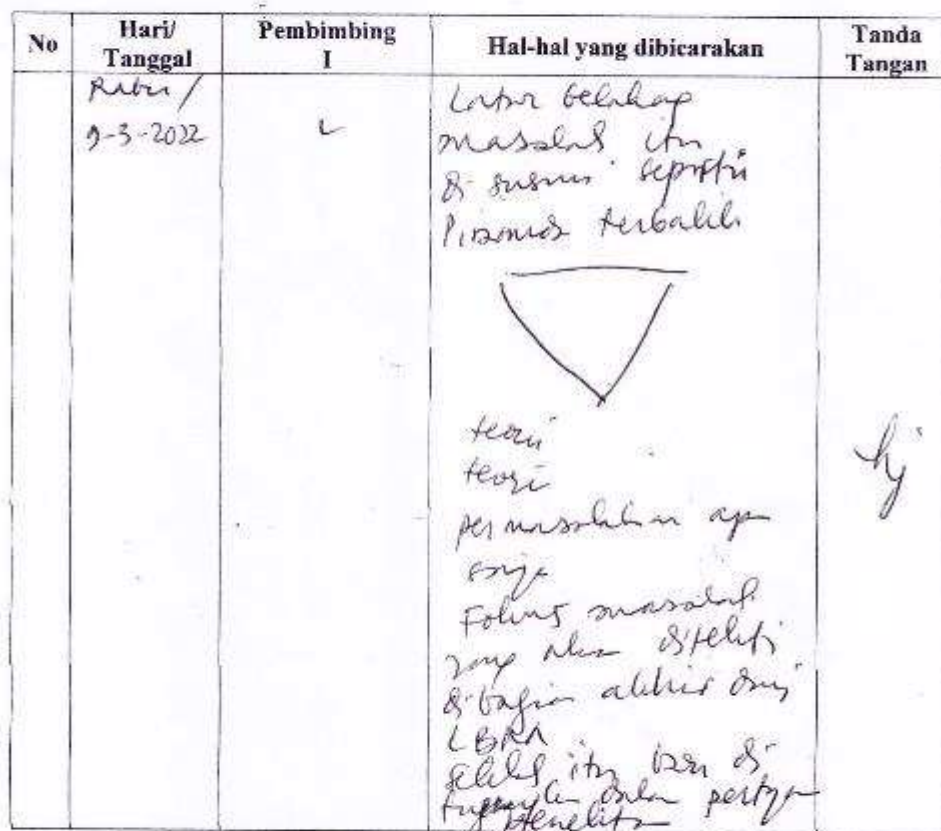 No Hari/ Tanggal Pembimbing I Hal-hal yang dibicarakan Tanda Tangan
Rabu / Latar belakang
9-3-2022 masalah itu
di susun seperti
Piramida terbalik
teori
teori
permasalahan apa
Fokus masalah
yang akan diteliti
di bagian akhir dari
LBM
setelah itu baru di
dalam
penelitian